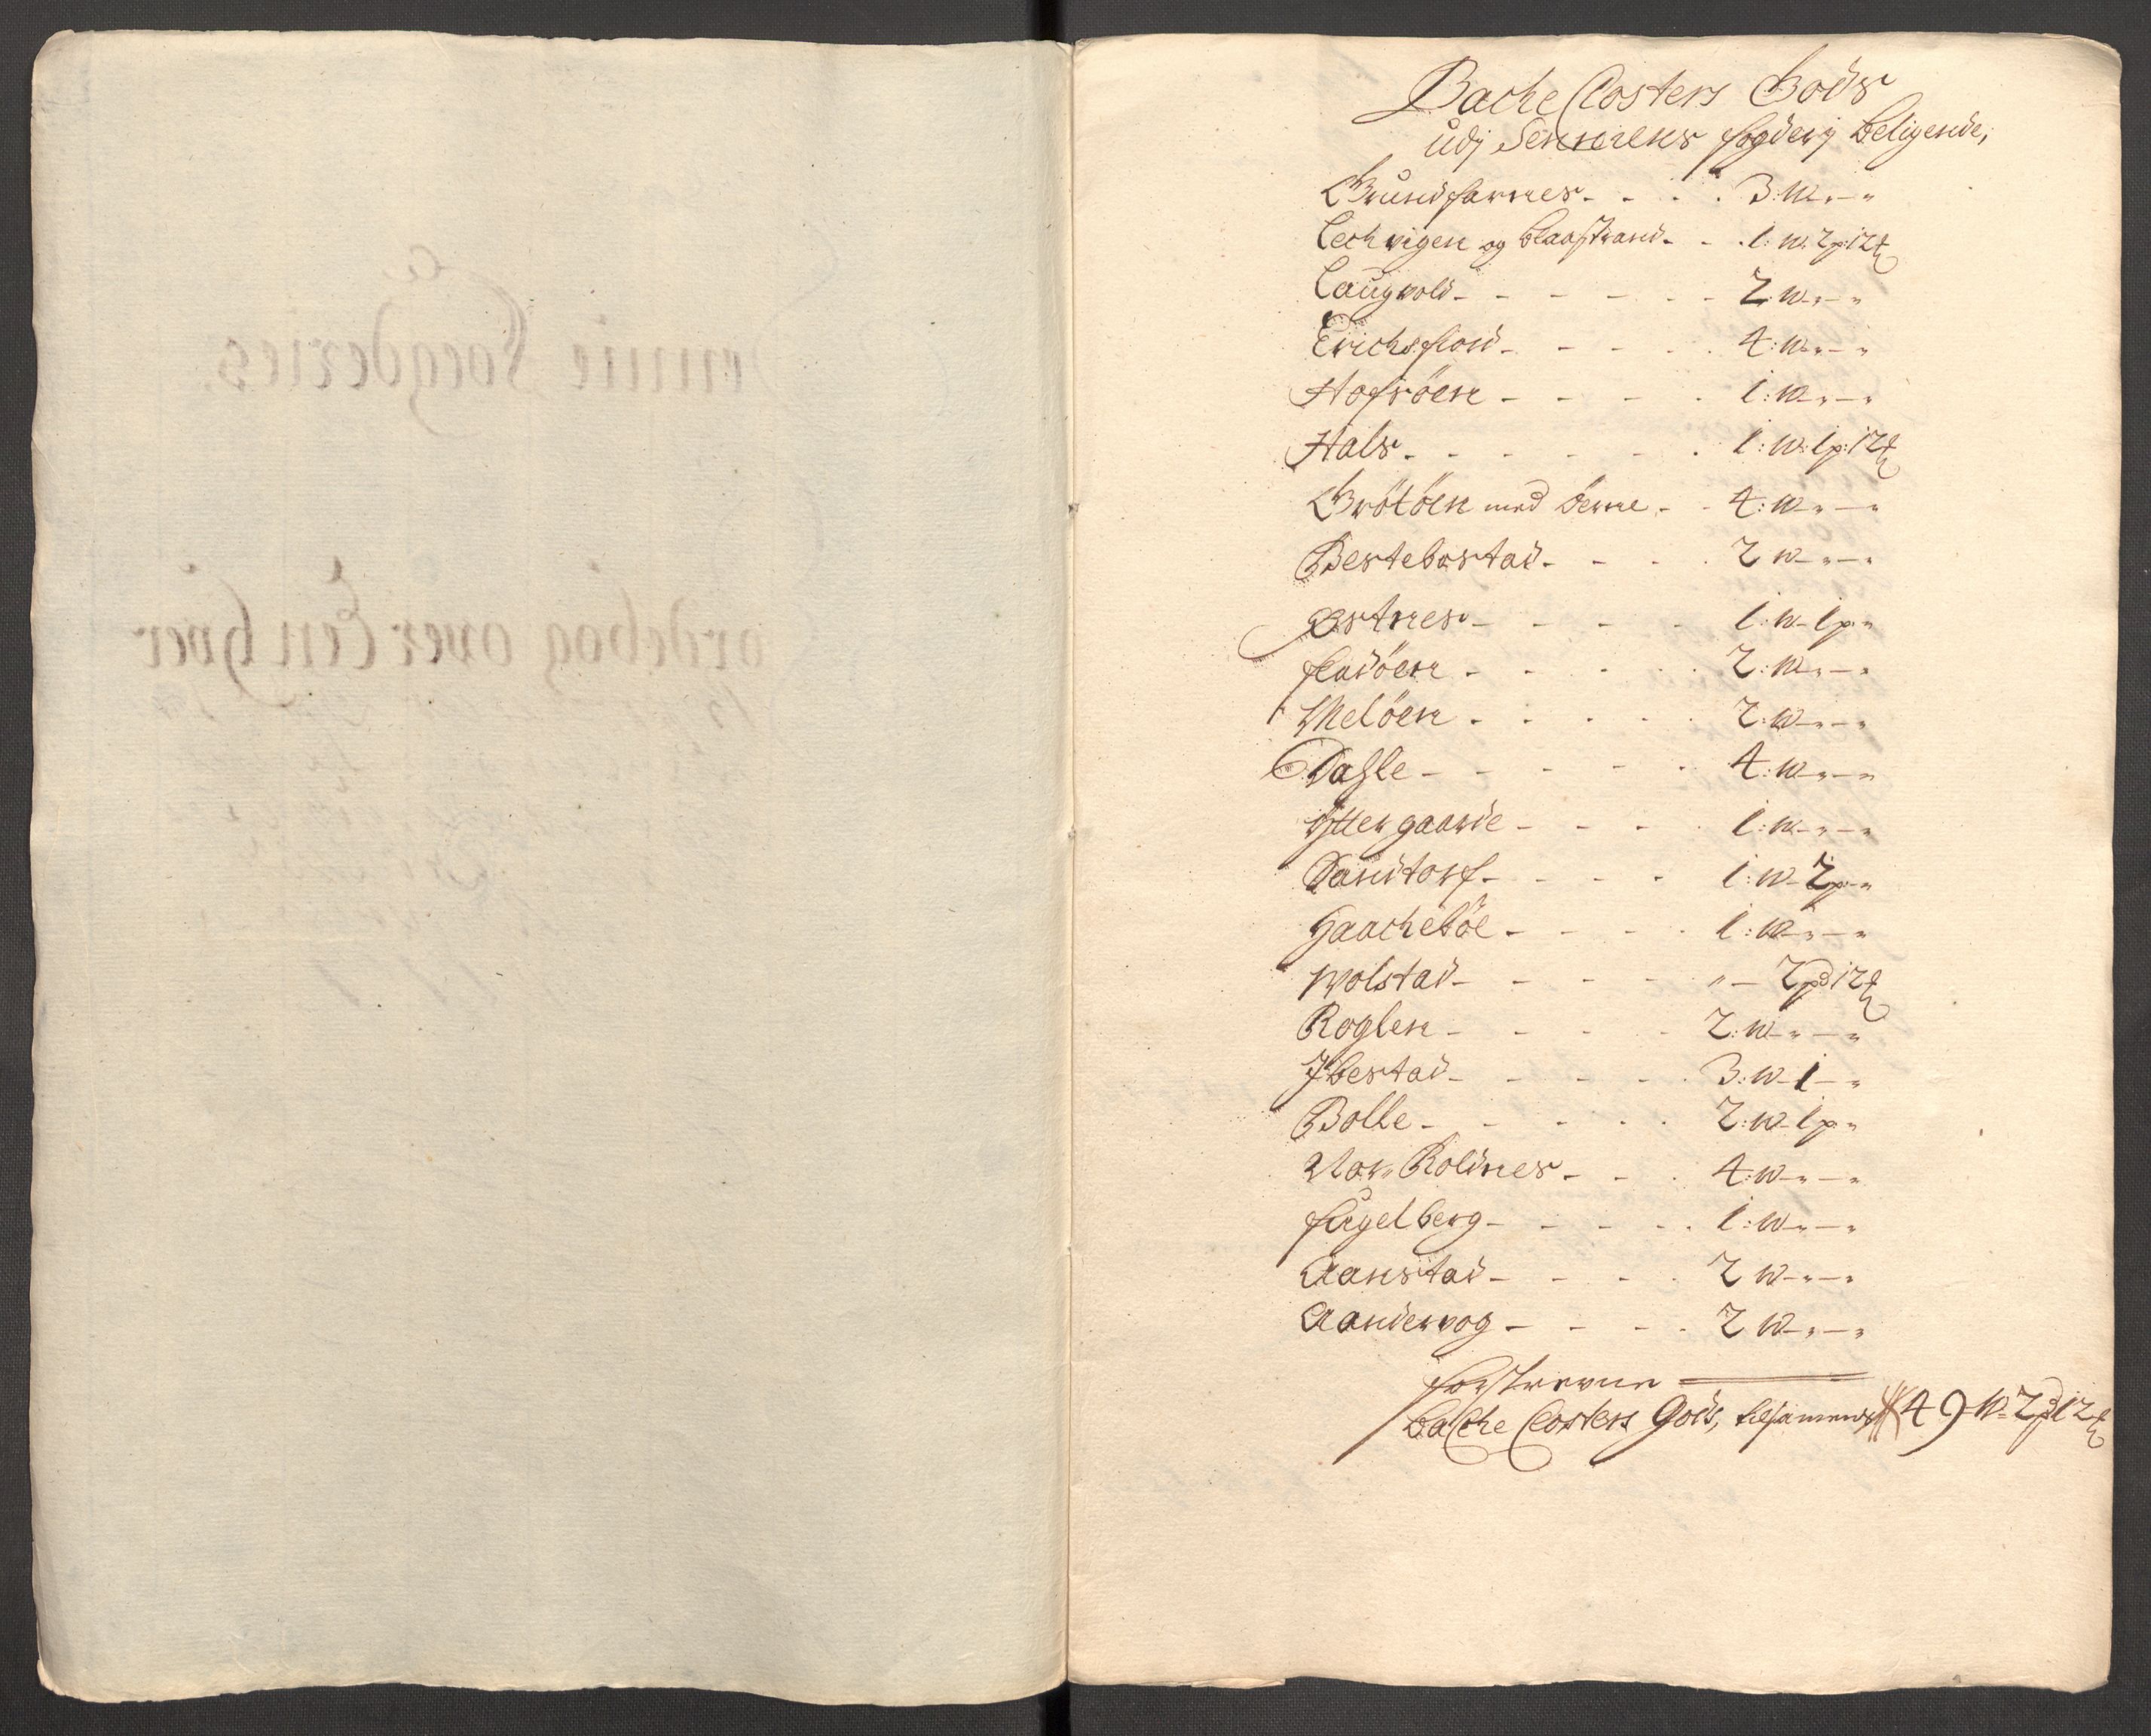 Bache Closters Gods
udj Senniens fogderj beligende,
Grundfarnes - - - - 3: W - " - "
Lechvigen og Blaastrand - - 1: W. 2 p: 12 ℔
Laugvold - - - - - - 2: W - " - "
Erichsfiord - - - - - 4: W - " - "
Hofsöen - - - - - 1: W - " - "
Hals - - - - - - - 1: W: 1 p: 12 ℔
Grötöen med öerne - - 4: W - " - "
Bestebostad - - - - 2 W - " - "
Østnes - - - - - 1: W - 1 p - "
fladöen - - - - - 2: W - " - "
Melöen - - - - - 2: W - " - "
Dahle - - - - - - 4: W - " - "
Yttergaarde - - - - 1: W - " - "
Sandtorf - - - - - 1: W - 2 p - "
Haachebøe - - - - 1: W - " - "
Wolstad - - - - - " - 2 pd 12 ℔
Roglen - - - - - 2: W - " - "
Ibestad - - - - - 3: W - 1 - "
Bolle - - - - - - 2: W - 1 p - "
Nor: Roldnes - - - 4: W - " - "
fugelberg - - - - - 1: W - " - "
Aanstad - - - - - 2 W - " - "
Aandervog - - - - 2 W - " - "
forskrevne
bache Closters Gods, tilsammens 49 W - 2 pd 12 ℔